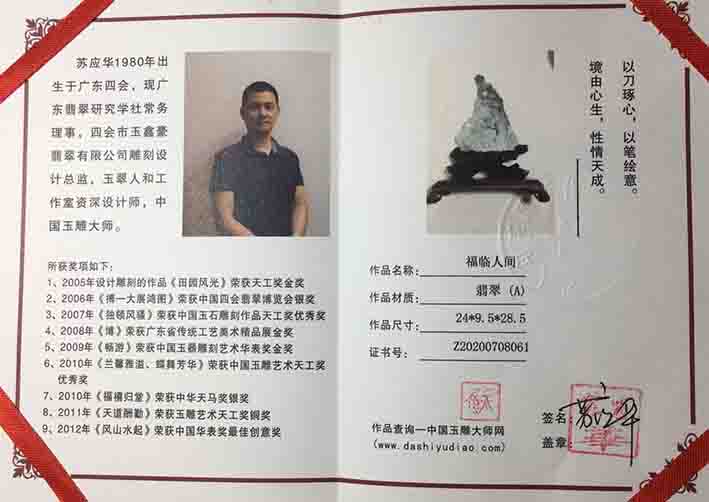 苏应华1980年出
生于广东四会，现广
东翡翠研究学社常务
理事，四会市玉鑫豪
翡翠有限公司雕刻设
计总监，玉翠人和工
作室资深设计师，中
国玉雕大师。
所获奖项如下：
1、2005年设计雕刻的作品《田园风光》荣获天工奖金奖
2、2006年《搏一大展鸿图》荣获中国四会翡翠博览会银奖
3、2007年《独领风骚》荣获中国玉石雕刻作品天工奖优秀奖
4、2008年《博》荣获广东省传统工艺美术精品展金奖
5、2009年《畅游》荣获中国玉器雕刻艺术华表奖金奖
6、2010年《兰馨雅溢、蝶舞芳华》荣获中国玉雕艺术天工奖
优秀奖
7、2010年《福禧归堂》荣获中华天马奖银奖
8、2011年《天道酬勤》荣获玉雕艺术天工奖铜奖
9、2012年《风山水起》荣获中国华表奖最佳创意奖
以刀琢心，以笔绘意。
境由心生，性情天成。
作品名称：福临人间
作品材质：翡翠（A）
作品尺寸：24*9.5*28.5
证书号：Z20200708061
作品查询—中国玉雕大师网
(www.dashiyudiao.com)
签名：
盖章：